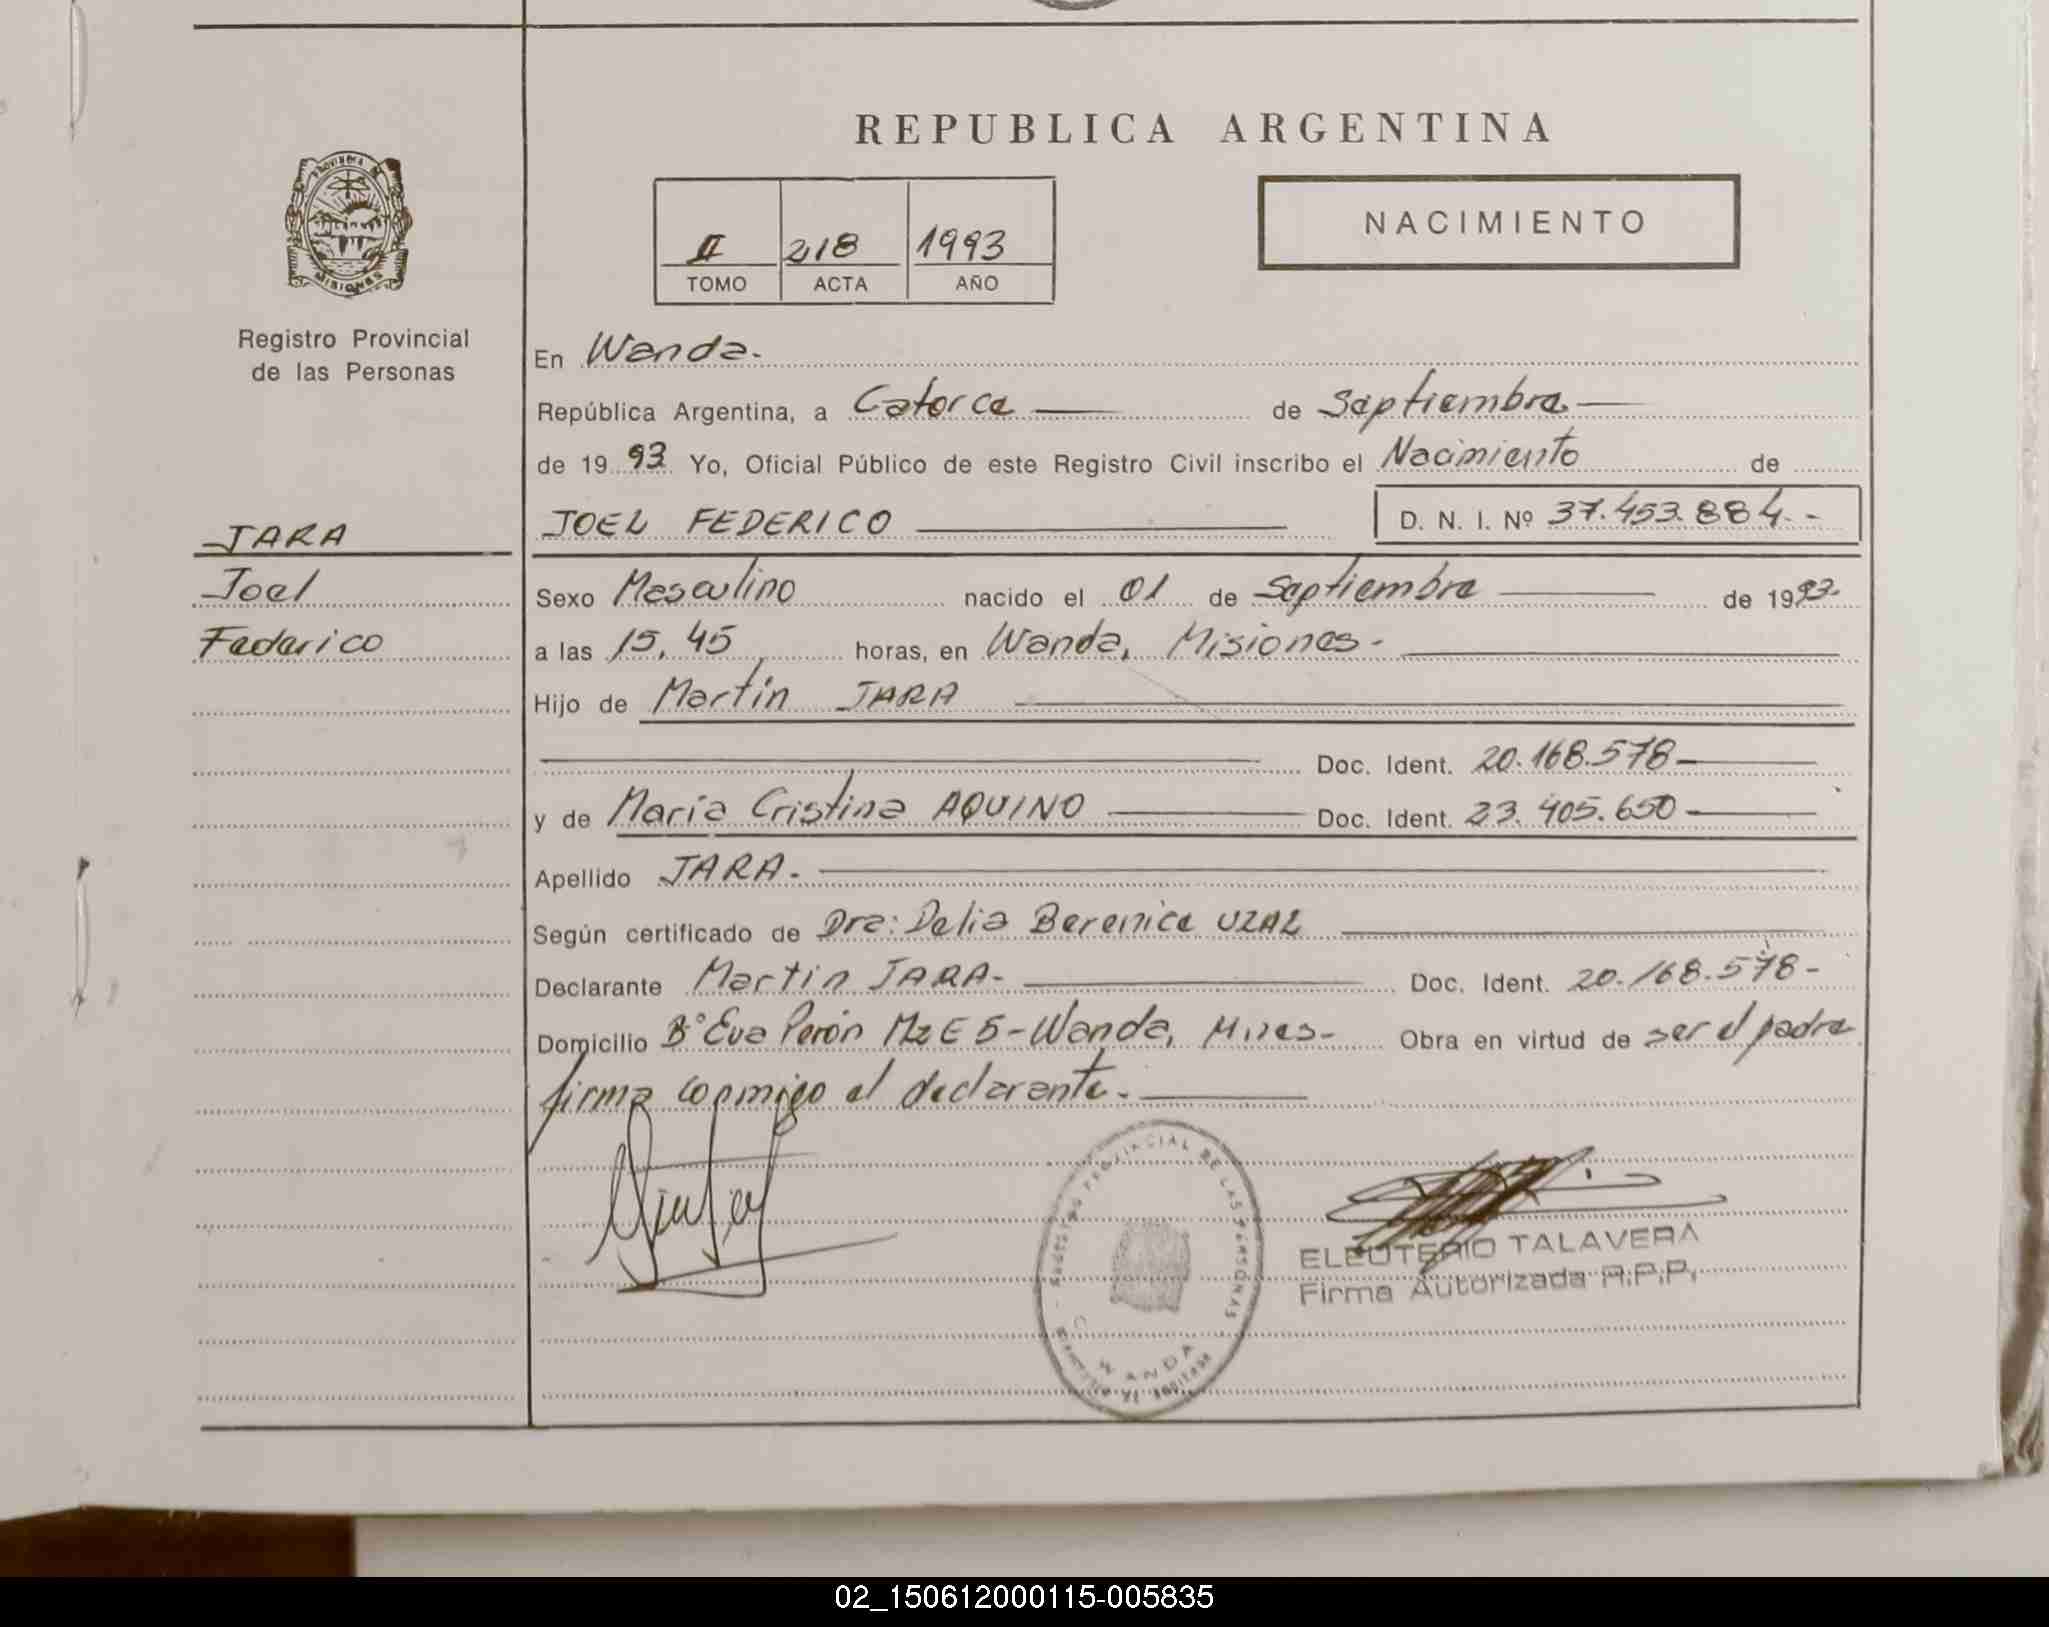 REPUBLICA ARGENTINA
PROVINCIA DE MISIONES
II 218 1993
TOMO ACTA AÑO
NACIMIENTO
Registro Provincial
de las Personas
JARA
Joel
Federico
En Wanda.
República Argentina, a Catorce de Septiembre
de 19 93 Yo, Oficial Público de este Registro Civil inscribo el Nacimiento de
JOEL FEDERICO D. N. I. Nº 37.453.884.-
Sexo Masculino nacido el 01 de Septiembre de 1993.
a las 15,45 horas, en Wanda, Misiones-
Hijo de Martín JARA
Doc. Ident. 20.168.578
y de María Cristina AQUINO Doc. Ident. 23.405.650
Apellido JARA.
Según certificado de Dra: Delia Berenice UZAL
Declarante Martin JARA- Doc. Ident. 20.168.578-
Domicilio Bº Eva Perón Mz E 5-Wanda, Mnes- Obra en virtud de ser el padre
firma conmigo el declarante.
REGISTRO PROVINCIAL DE LAS PERSONAS
WANDA
ELEUTERIO TALAVERA
Firma Autorizada R.P.P.
02_150612000115-005835